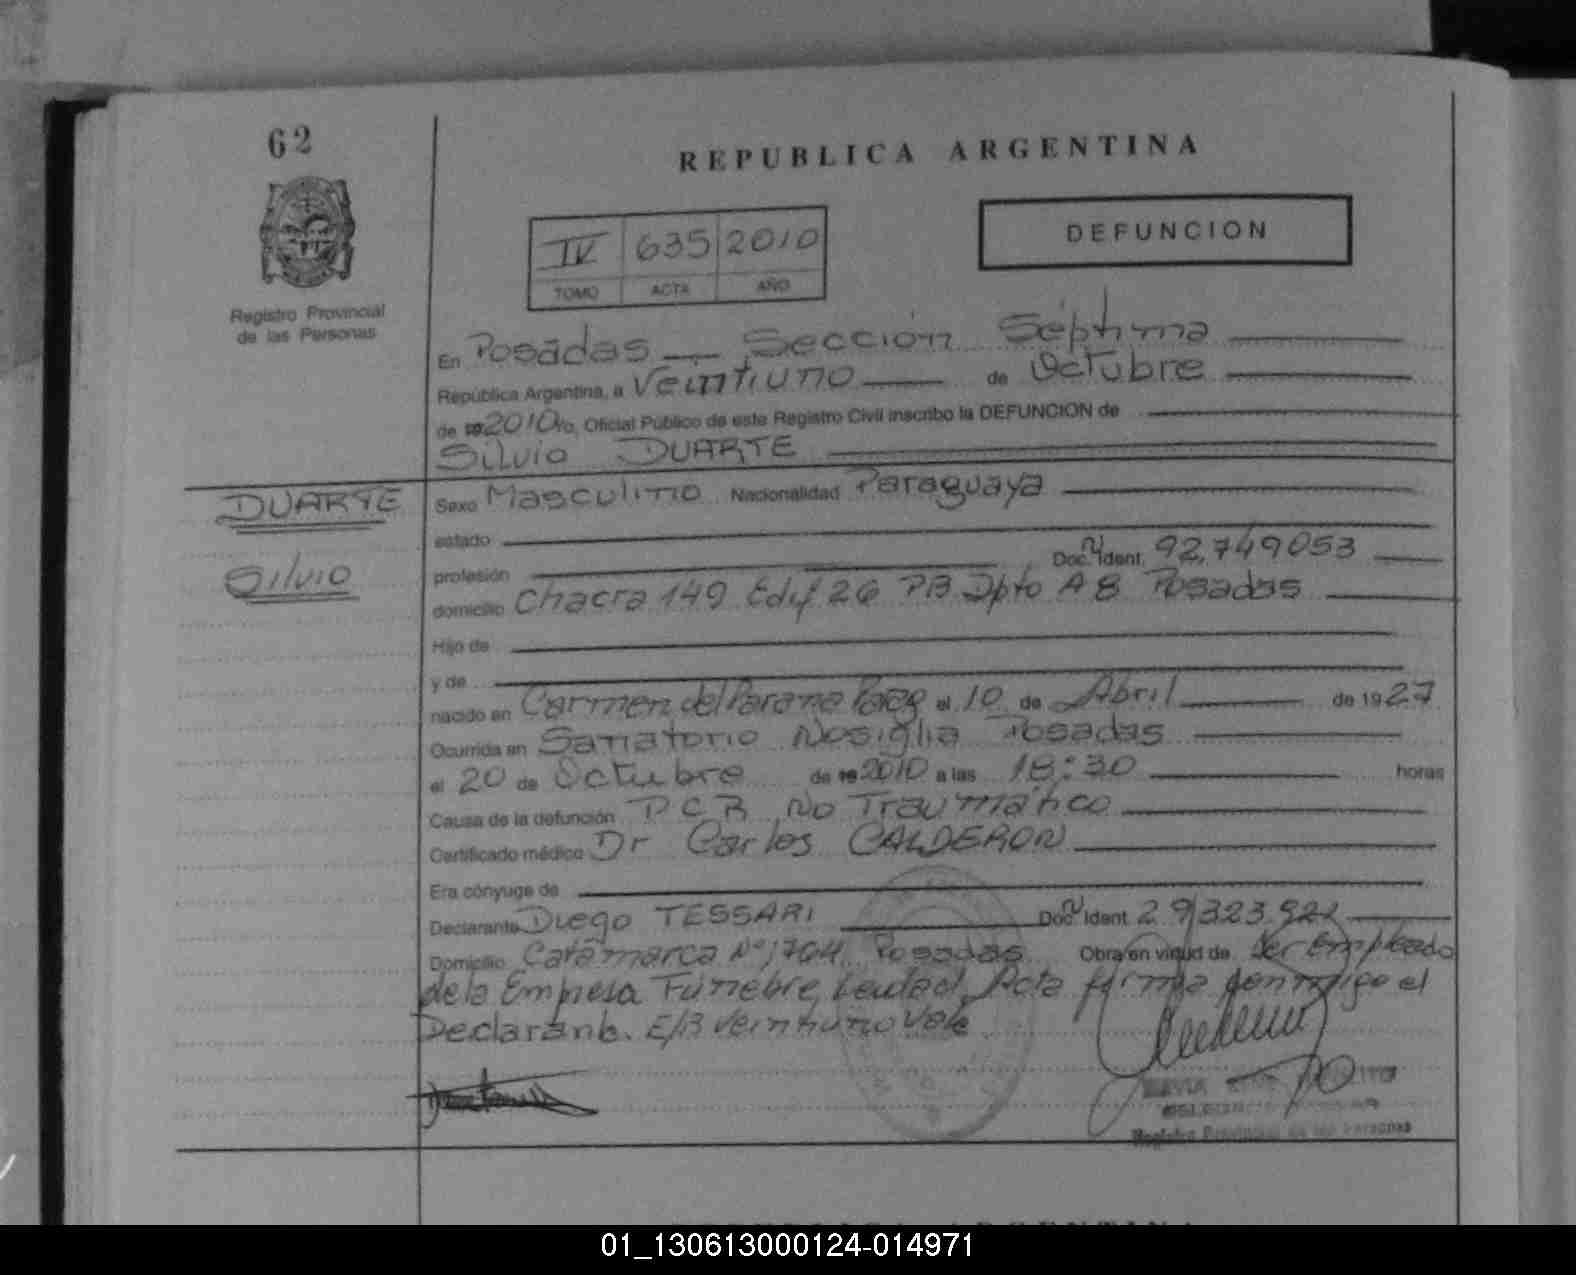 62
REPUBLICA ARGENTINA
IV 635 2010
TOMO ACTA AÑO
DEFUNCION
Registro Provincial
de las Personas
En Posadas Sección Séptima
República Argentina, a Veintiuno de Octubre
de 19 2010 Yo, Oficial Público de este Registro Civil inscribo la DEFUNCION de
Silvio DUARTE
DUARTE
Silvio
Sexo Masculino Nacionalidad Paraguaya
estado
profesión Doc. Ident. 92.749053
domicilio Chacra 149 Edif 26 PB Dpto A 8 Posadas
Hijo de
y de
nacido en Carmen del Parana Parag el 10 de Abril de 1927
Ocurrida en Sanatorio Nosiglia Posadas
el 20 de Octubre de 19 2010 a las 18:30 horas
Causa de la defunción P C R No Traumático
Certificado médico Dr Carlos CALDERON
Era cónyuge de
Declarante Diego TESSARI Doc. Ident. 29.323.922
Domicilio Catamarca Nº 1764 Posadas Obra en virtud de Ser Empleado
de la Empresa Fúnebre Acta firma conmigo el
Declarante. E/R Veintiuno Vale
Registro Provincial de las Personas
01_130613000124-014971